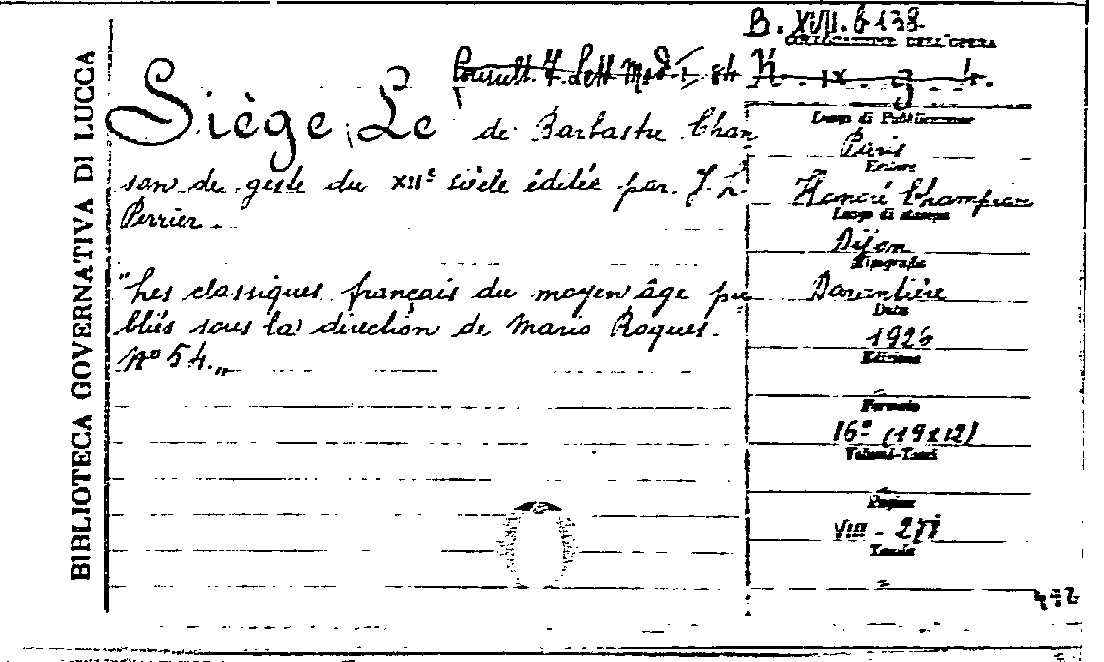 BIBLIOTECA GOVERNATIVA DI LUCCA
B. XVII. 6 138
COLLOCAZIONE DELL'OPERA
Siège, Le de Barbastre Chan
son de geste du XIIe siècle éditée par J. L.
Perrier.
"Les classiques français du moyen âge pu
bliés sous la direction de Mario Roques.
No 54.„
Luogo di Pubblicazione
Paris
Editore
Honoré Champion
Luogo di stampa
Dijon
Tipografia
Darantière
Data
1926
Edizione
-
Formato
16º (19x12)
Volumi-Tomi
-
Pagine
VIII - 271
Tavole
=